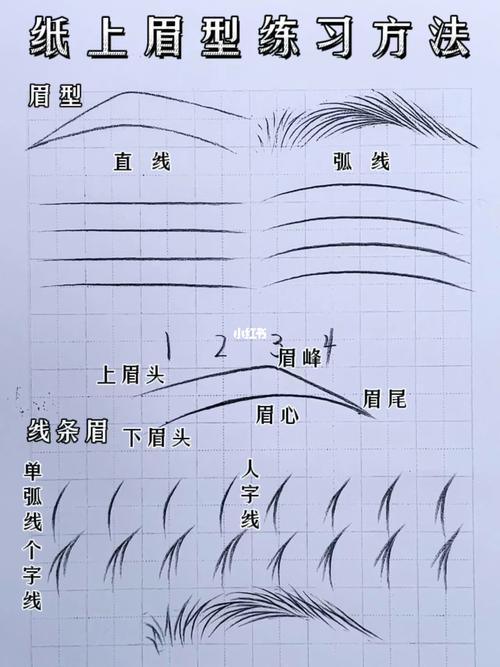 纸上眉型练习方法
眉型
直线
弧线
小红书
1 2 3 4
上眉头
眉峰
眉尾
眉心
线条眉
下眉头
单弧线个字线
人字线